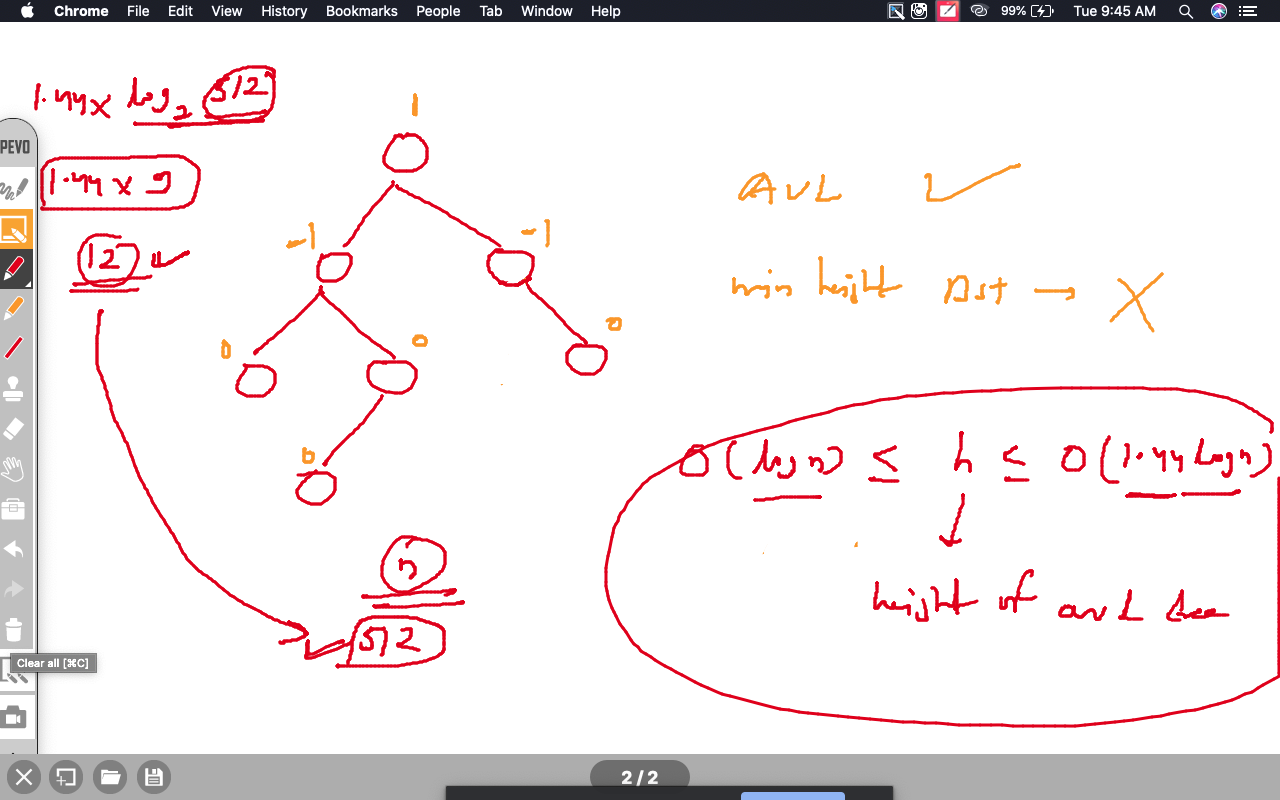 Chrome File Edit View History Bookmarks People Tab Window Help 99% Tue 9:45 AM
1.44 x log2 512
PEVO
1.44 x 9
12
1
-1
-1
0
0
0
0
n
512
AVL
min height Bst → X
O(log n) ≤ h ≤ O(1.44 log n)
height of avl tree
Clear all [⌘C]
2 / 2